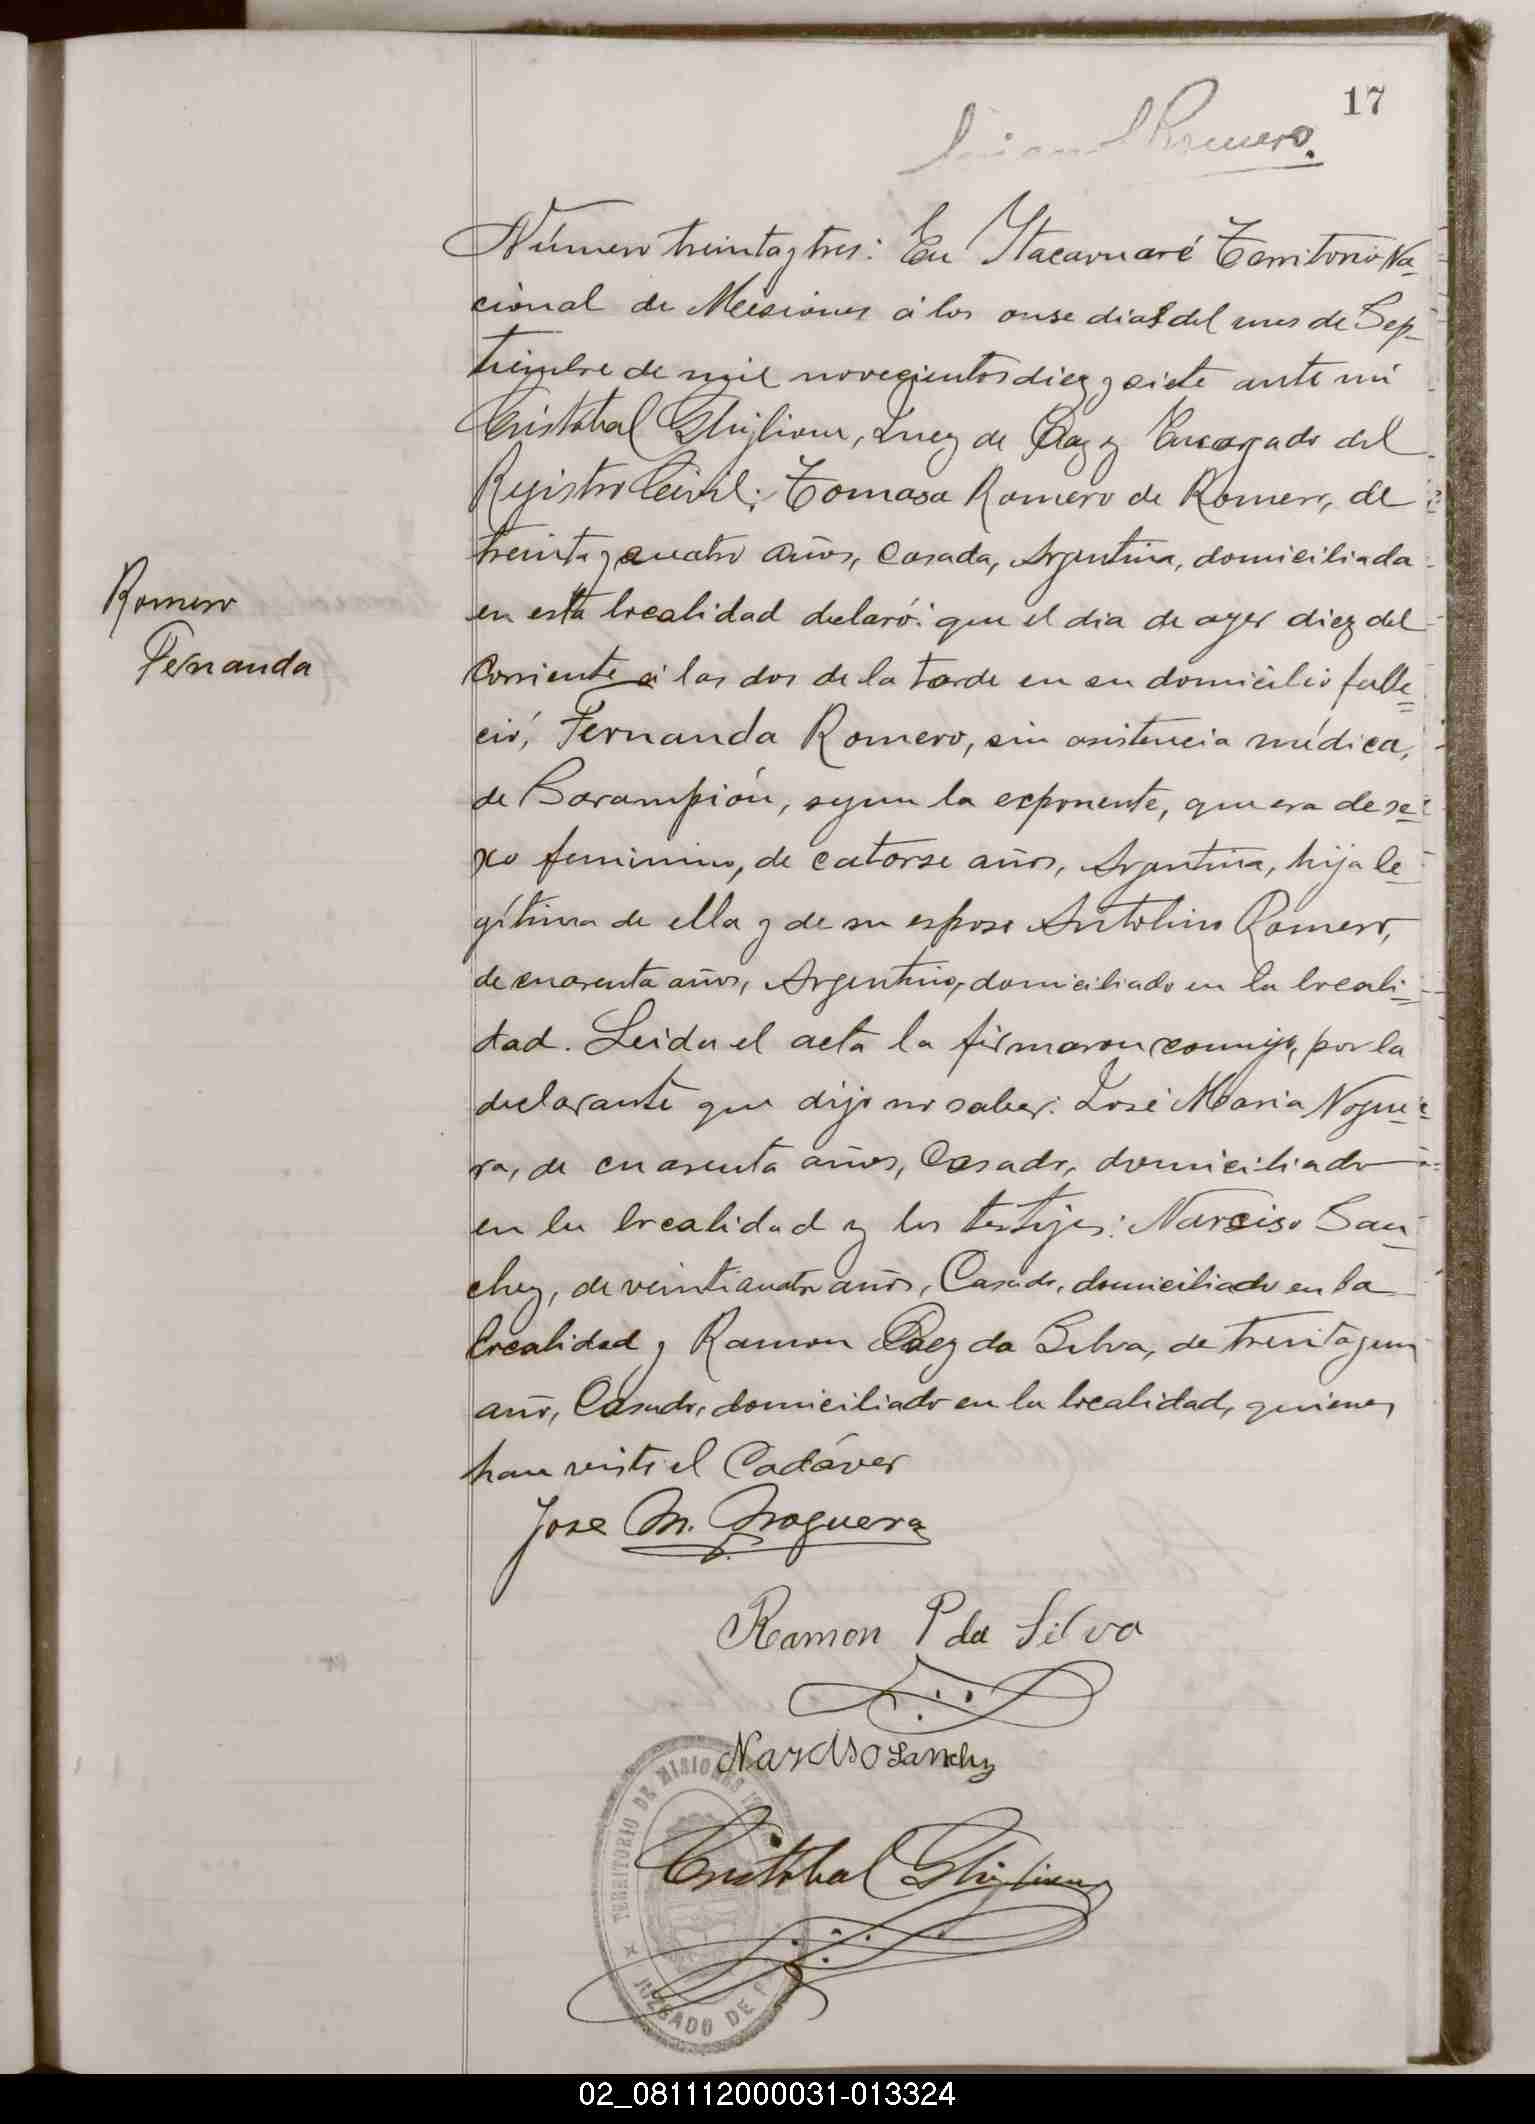 17
Romero.
Número treinta y tres: En Itacaruaré Territorio Na-
cional de Missiones á los onse dias del mes de Sep-
tiembre de mil novecientos diez y siete ante mi
Cristobal Ghiglione, Juez de Paz y Encargado del
Registro Civil; Tomasa Romero de Romero, de
treinta y cuatro años, Casada, Argentina, domiciliada
en esta localidad declaró: que el dia de ayer diez del
Corriente á las dos de la tarde en su domicilio falle-
ció, Fernanda Romero, sin asistencia médica,
de Sarampión, segun la exponente, que era de se-
xo feminino, de catorse años, Argentina, hija le-
gítima de ella y de su esposo Antolino Romero,
de cuarenta años, Argentino, domiciliado en la locali-
dad. Leida el acta la firmaron conmigo, por la
declarante que dijo no saber: José Maria Nogue-
ra, de cuarenta años, Casado, domiciliado
en la localidad y los testijos: Narciso San-
chez, de veinticuatro años, Casado, domiciliado en la
localidad y Ramon Paez da Silva, de treinta y un
año, Casado, domiciliado en la localidad, quienes
han visto el Cadáver
Romero
Fernanda
Jose M. Noguera
Ramon P da Silva
Narciso Sanchez
Cristobal Ghiglione
TERRITORIO DE MISIONES
JUZGADO DE P
02_081112000031-013324